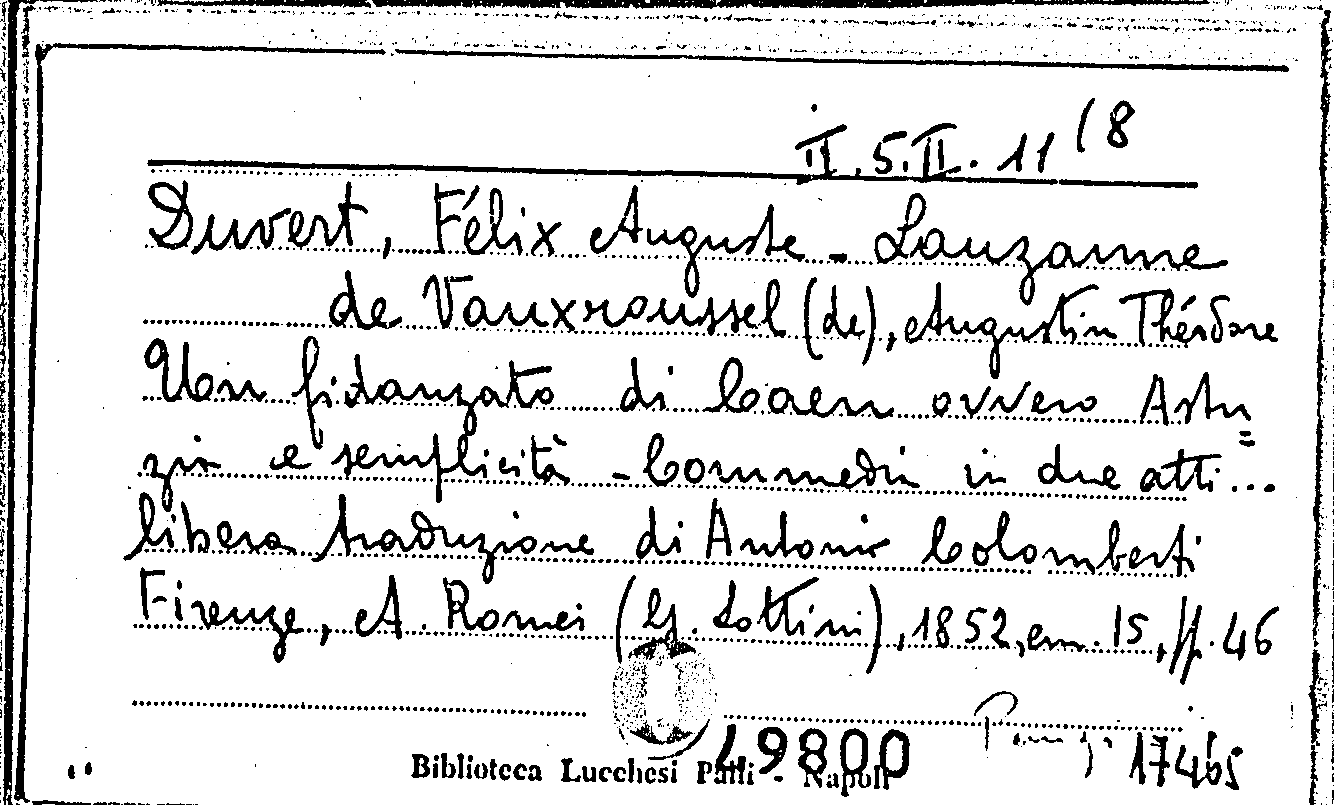 II.5.II.11 /8
Duvert, Félix Auguste - Lauzanne
de Vauxroussel (de), Augustin Théodore
Un fidanzato di Caen ovvero Astu=
zia e semplicità - Commedia in due atti...
libera traduzione di Antonio Colomberti
Firenze, A. Romei (G. Lottini), 1852, cm. 15, pp. 46
49800
17465
Biblioteca Lucchesi Palli - Napoli